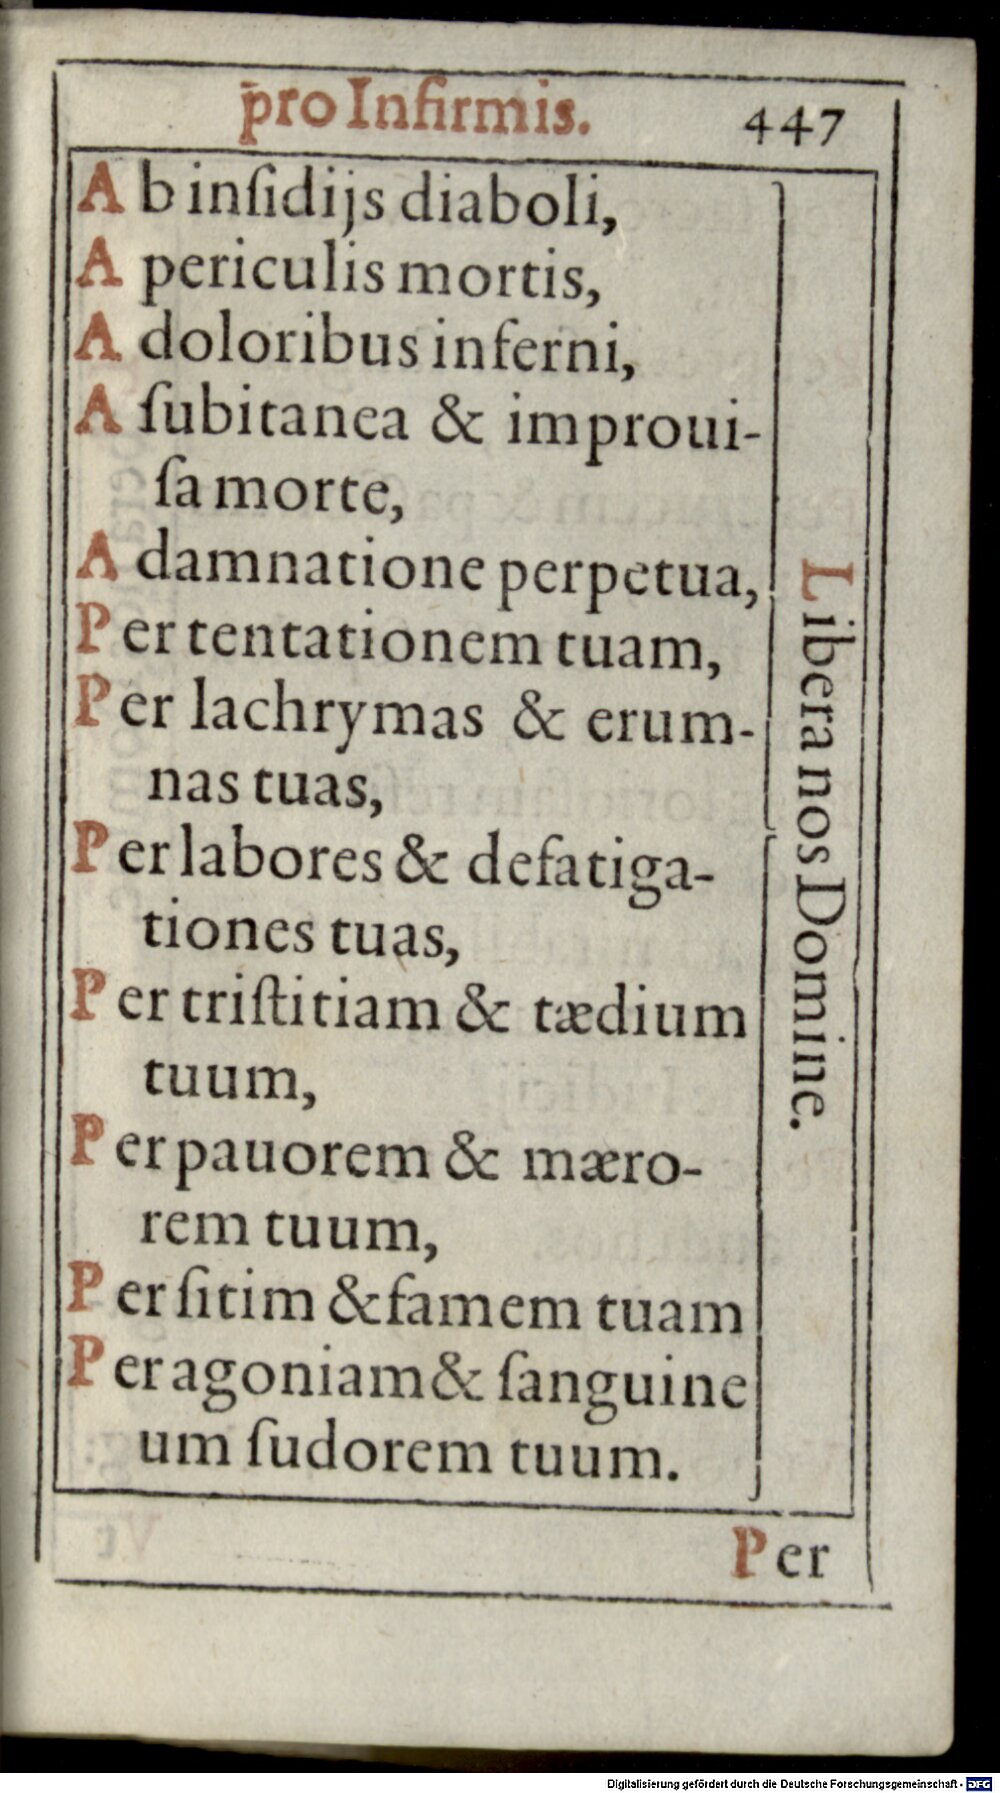 pro Infirmis. 447
Ab inſidijs diaboli,
A periculis mortis,
A doloribus inferni,
A ſubitanea & improui-
ſa morte,
A damnatione perpetua,
Per tentationem tuam,
Per lachrymas & erum-
nas tuas,
Per labores & defatiga-
tiones tuas,
Per triſtitiam & tædium
tuum,
Per pauorem & mæro-
rem tuum,
Per ſitim & famem tuam
Per agoniam & ſanguine
um ſudorem tuum.
Libera nos Domine.
Per
Digitalisierung gefördert durch die Deutsche Forschungsgemeinschaft - DFG